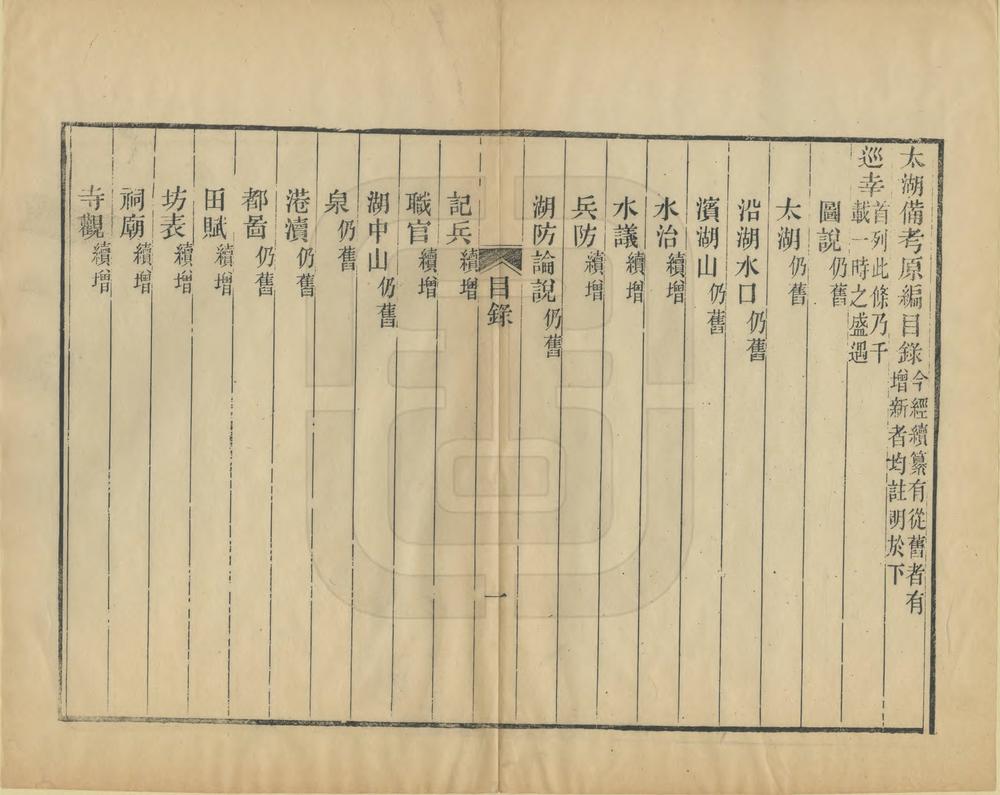 太湖備考原編目錄今經續纂有從舊者有增新者均註明於下
巡幸首列此條乃千載一時之盛遇
圖說仍舊
太湖仍舊
沿湖水口仍舊
濱湖山仍舊
水治續增
水議續增
兵防續增
湖防論說仍舊
目錄
一
記兵續增
職官續增
湖中山仍舊
泉仍舊
港瀆仍舊
都啚仍舊
田賦續增
坊表續增
祠廟續增
寺觀續增